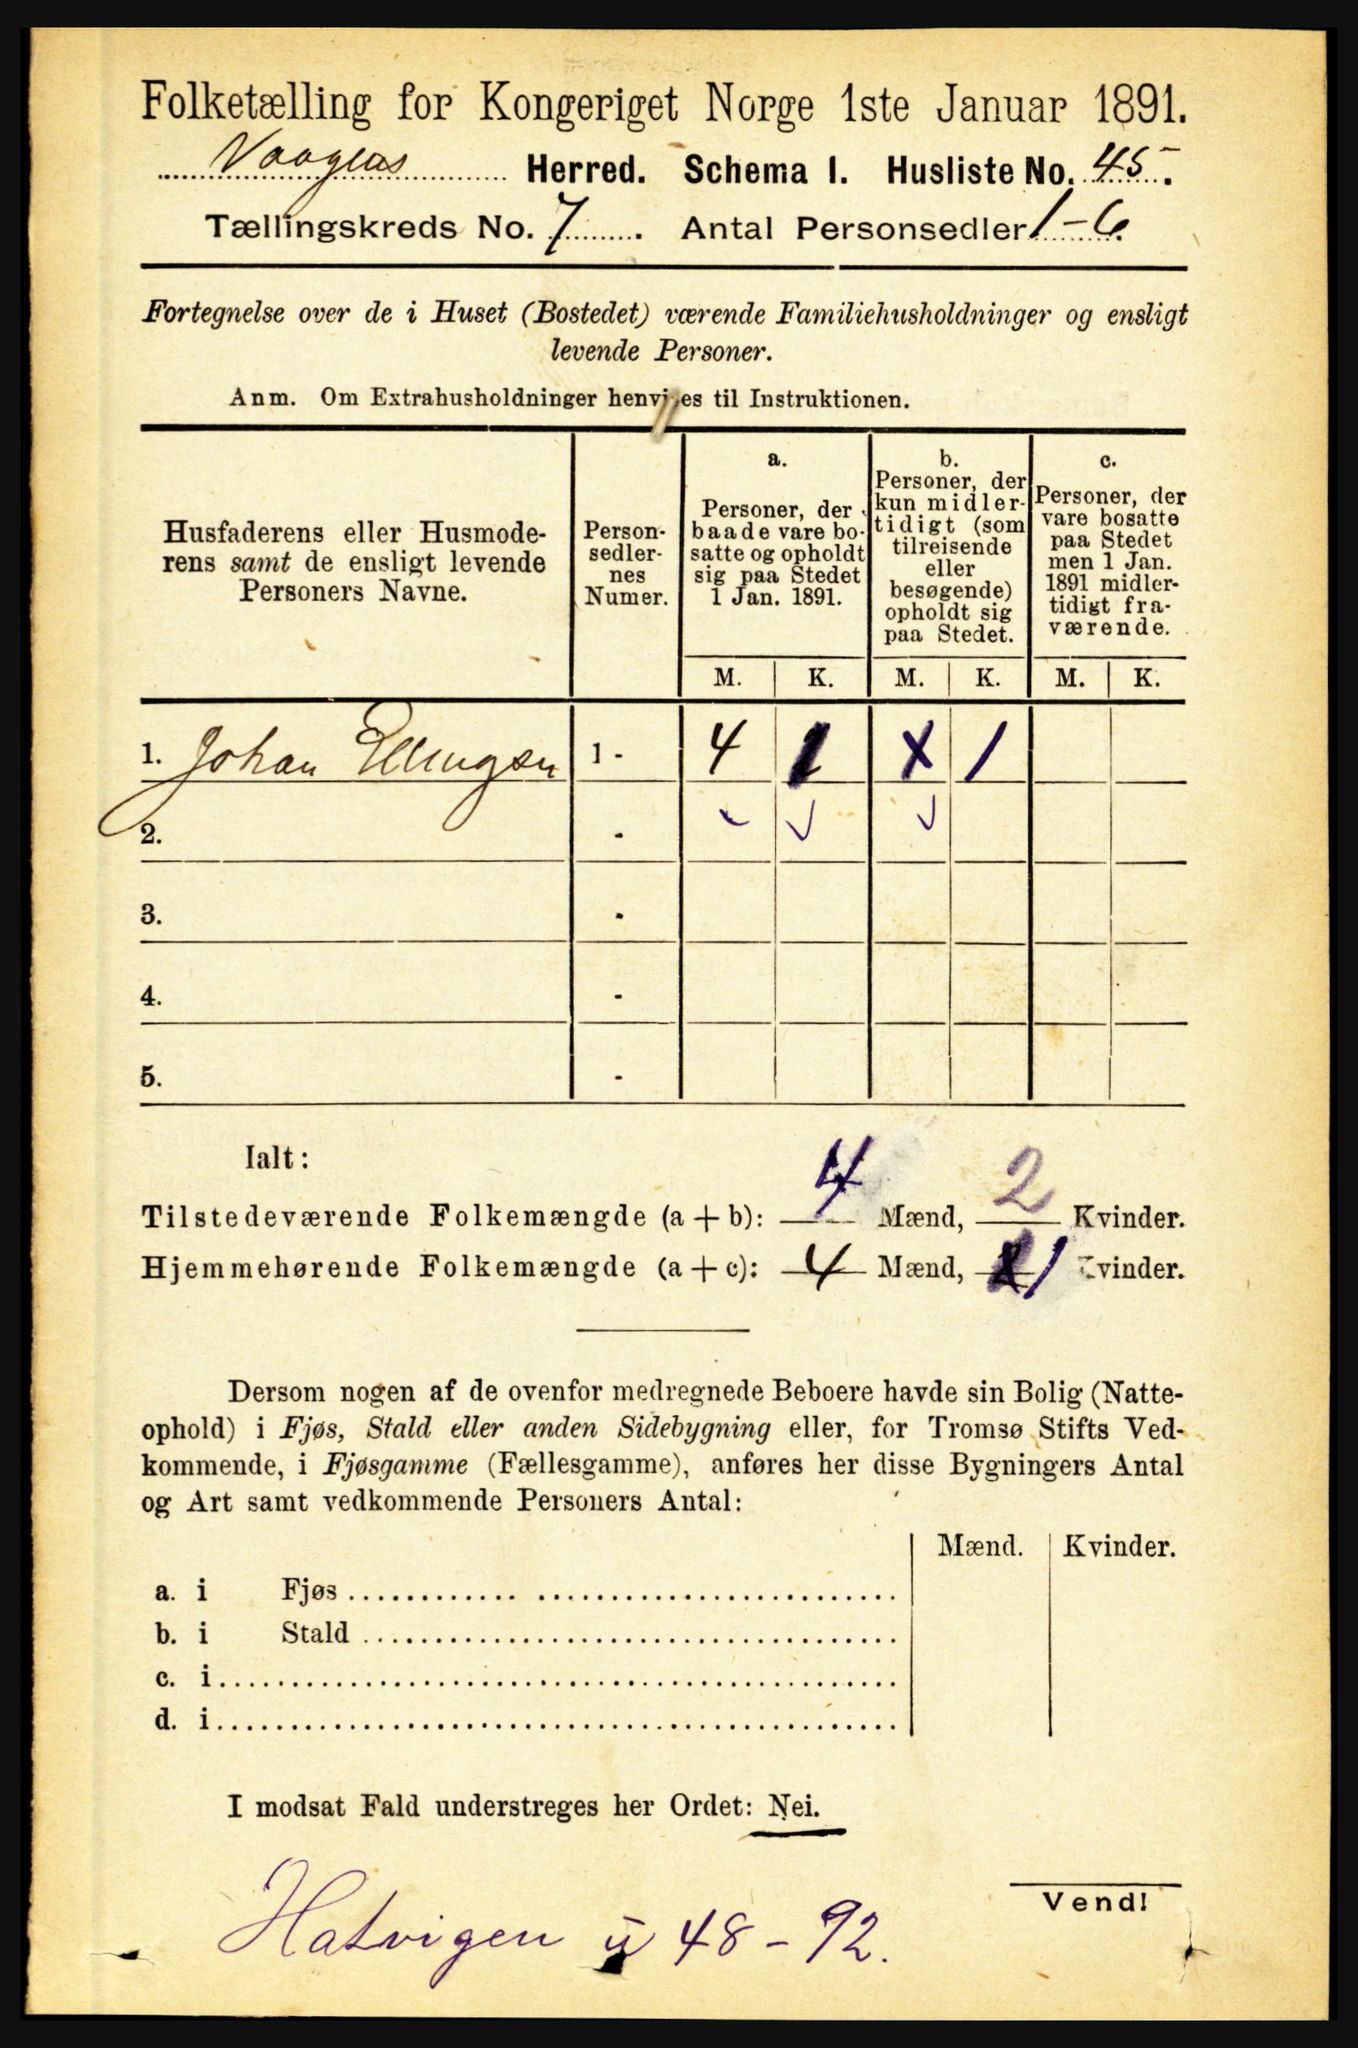 Folketælling for Kongeriget Norge 1ste Januar 1891.
Herred. Schema I. Husliste No. 45.
Tællingskreds No. 7. Antal Personsedler 1-6.
Fortegnelse over de i Huset (Bostedet) værende Familiehusholdninger og ensligt
levende Personer.
Anm. Om Extrahusholdninger henvises til Instruktionen.
Husfaderens eller Husmode-
rens samt de ensligt levende
Personers Navne.
Person-
sedler-
nes
Numer.
a.
Personer, der
baade vare bo-
satte og opholdt
sig paa Stedet
1 Jan. 1891.
b.
Personer, der
kun midler-
tidigt (som
tilreisende
eller
besøgende)
opholdt sig
paa Stedet.
c.
Personer, der
vare bosatte
paa Stedet
men 1 Jan.
1891 midler-
tidigt fra-
værende.
M. K. M. K. M. K.
1. Johan Ellingsen 1 - 4 1 x 1
2. -
3. -
4. -
5. -
Ialt:
Tilstedeværende Folkemængde (a + b): 4 Mænd, 2 Kvinder.
Hjemmehørende Folkemængde (a + c): 4 Mænd, 1 Kvinder.
Dersom nogen af de ovenfor medregnede Beboere havde sin Bolig (Natte-
ophold) i Fjøs, Stald eller anden Sidebygning eller, for Tromsø Stifts Ved-
kommende, i Fjøsgamme (Fællesgamme), anføres her disse Bygningers Antal
og Art samt vedkommende Personers Antal:
Mænd. Kvinder.
a. i Fjøs
b. i Stald
c. i
d. i
I modsat Fald understreges her Ordet: Nei.
Vend!
Hatvigen 48-92.